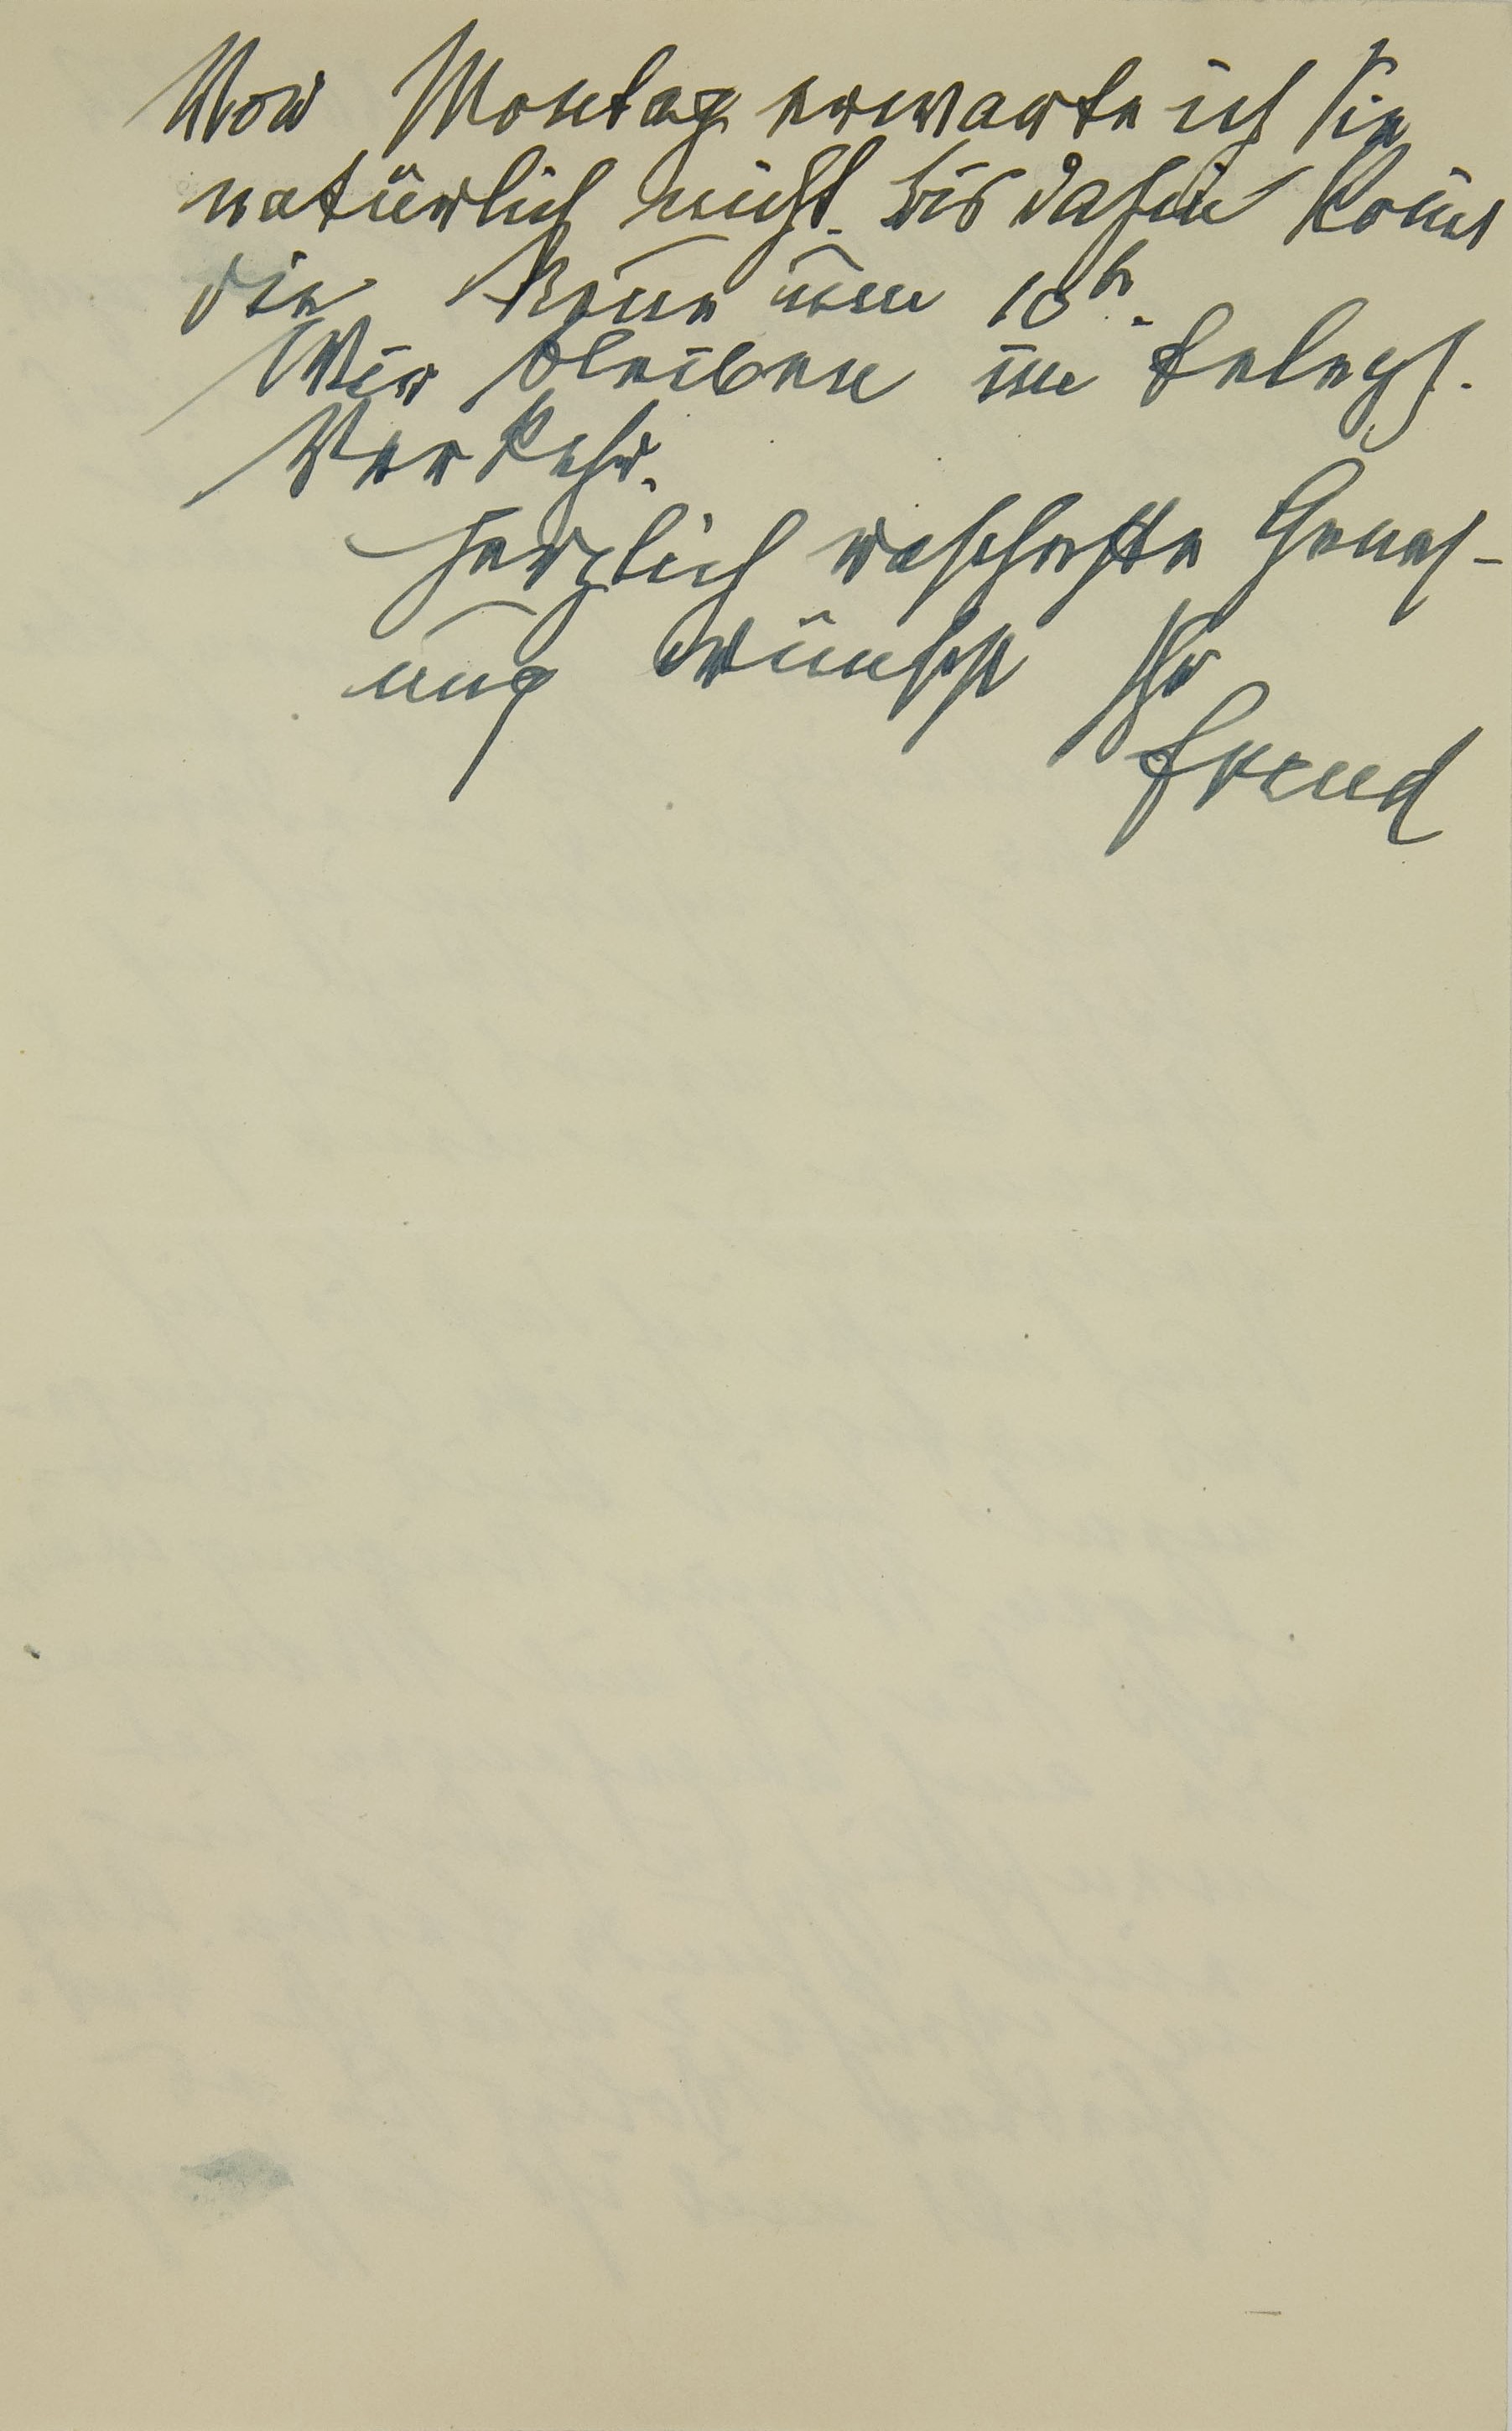 Vor Montag erwarte ich Sie
natürlich nicht. bis dahin kom̄t
die um 10h.
Wir bleiben im teleph.
Verkehr.
Herzlich rascheste Genes-
ung wünscht Ihr
Freud